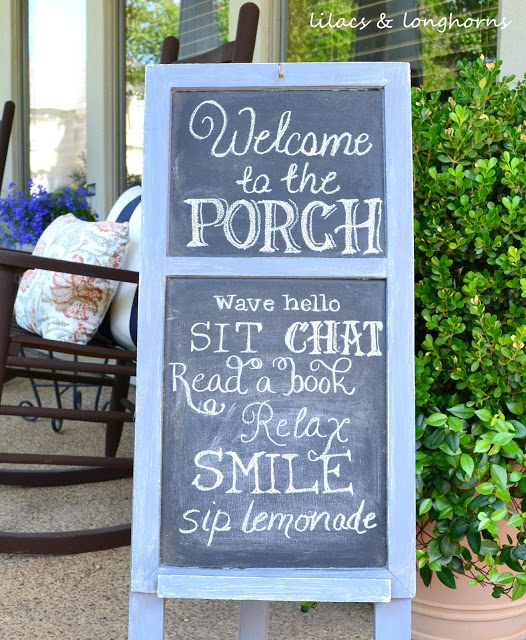 lilacs & longhorns
Welcome
to the
PORCH
Wave hello
SIT CHAT
Read a book
Relax
SMILE
sip lemonade